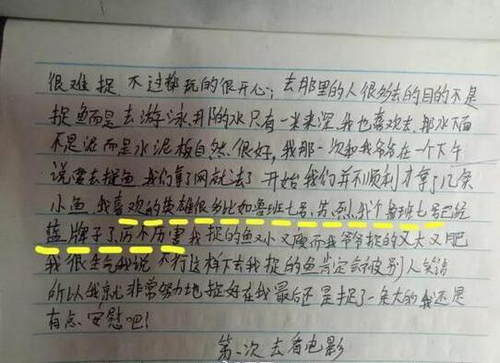 很难捉 不过都玩的很开心；去那里的人很多去的目的不是
捉鱼而是去游泳,那的水只有一米来深,我也喜欢去,那水下面
不是泥而是水泥板自然很好,我那一次和我爷爷在一个下午
说要去捉鱼,我们拿了网就法了 开始我们并不顺利才拿了几条
小鱼,我喜欢的英雄很多比如鲁班七号,苏烈,我个鲁班七号已经
蓝牌子了,历不历害 我捉的鱼又小又瘦而我爷爷捉的又大又肥
我很生气我说 不行这样下去我捉的鱼肯定命被别人笑话
所以我就非常努力地捉好在我最后还是捉了一条大的我还是
有点安慰吧!
第一次去看电影